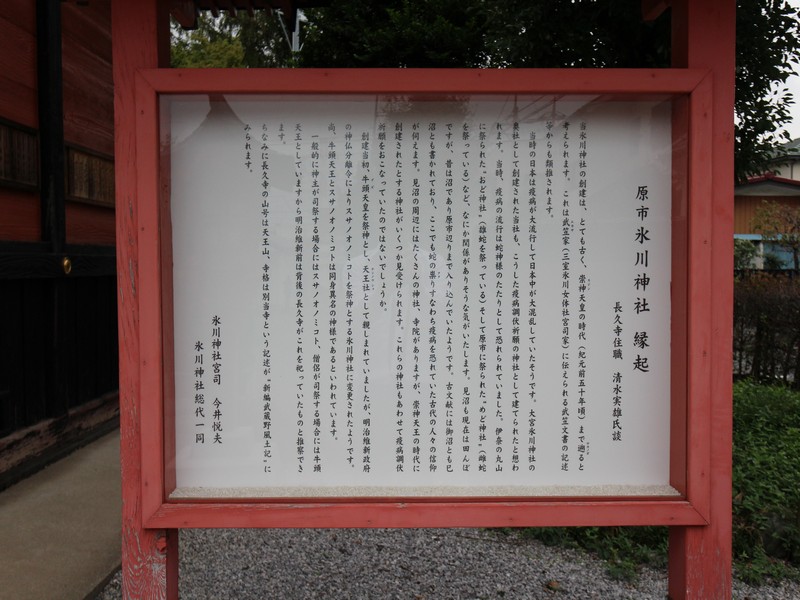 原市氷川神社 縁起
長久寺住職 清水実雄氏談
当氷川神社の創建は、とても古く、崇神天皇の時代（紀元前五十年頃）まで遡ると
考えられます。これは武笠家（三室氷川女体社宮司家）に伝えられる武笠文書の記述
等からも類推されます。
当時の日本は疫病が大流行して日本中が大混乱していたそうです。大宮氷川神社の
奥社として創建された当社も、こうした疫病調伏祈願の神社として建てられたと想わ
れます。当時、疫病の流行は蛇神様のたたりとして恐れられていました。伊奈の丸山
に祭られた"おど神社"（雄蛇を祭っている）そして原市に祭られた"めど神社"（雌蛇
を祭っている）など、なにか関係がありそうな気がいたします。見沼も現在は田んぼ
ですが、昔は沼であり原市辺りまで入り込んでいたようです。古文献には御沼とも巳
沼とも書かれており、ここでも蛇の祟りすなわち疫病を恐れていた古代の人々の信仰
が伺えます。見沼の周辺にはたくさんの神社、寺院がありますが、崇神天王の時代に
創建されたとする神社がいくつか見受けられます。これらの神社もあわせて疫病調伏
祈願をおこなっていたのではないでしょうか。
創建当初、牛頭天皇を祭神とし、天王社として親しまれていましたが、明治維新政府
の神仏分離令によりスサノオノミコトを祭神とする氷川神社に変更されたようです。
尚、牛頭天王とスサノオノミコトは同身異名の神様であるといわれています。
一般的に神主が司祭する場合にはスサノオノミコト、僧侶が司祭する場合には牛頭
天王としていますから明治維新前は背後の長久寺がこれを祀っていたものと推察でき
ます。
ちなみに長久寺の山号は天王山、寺格は別当寺という記述が"新編武蔵野風土記"に
みられます。
氷川神社宮司 今井悦夫
氷川神社総代一同